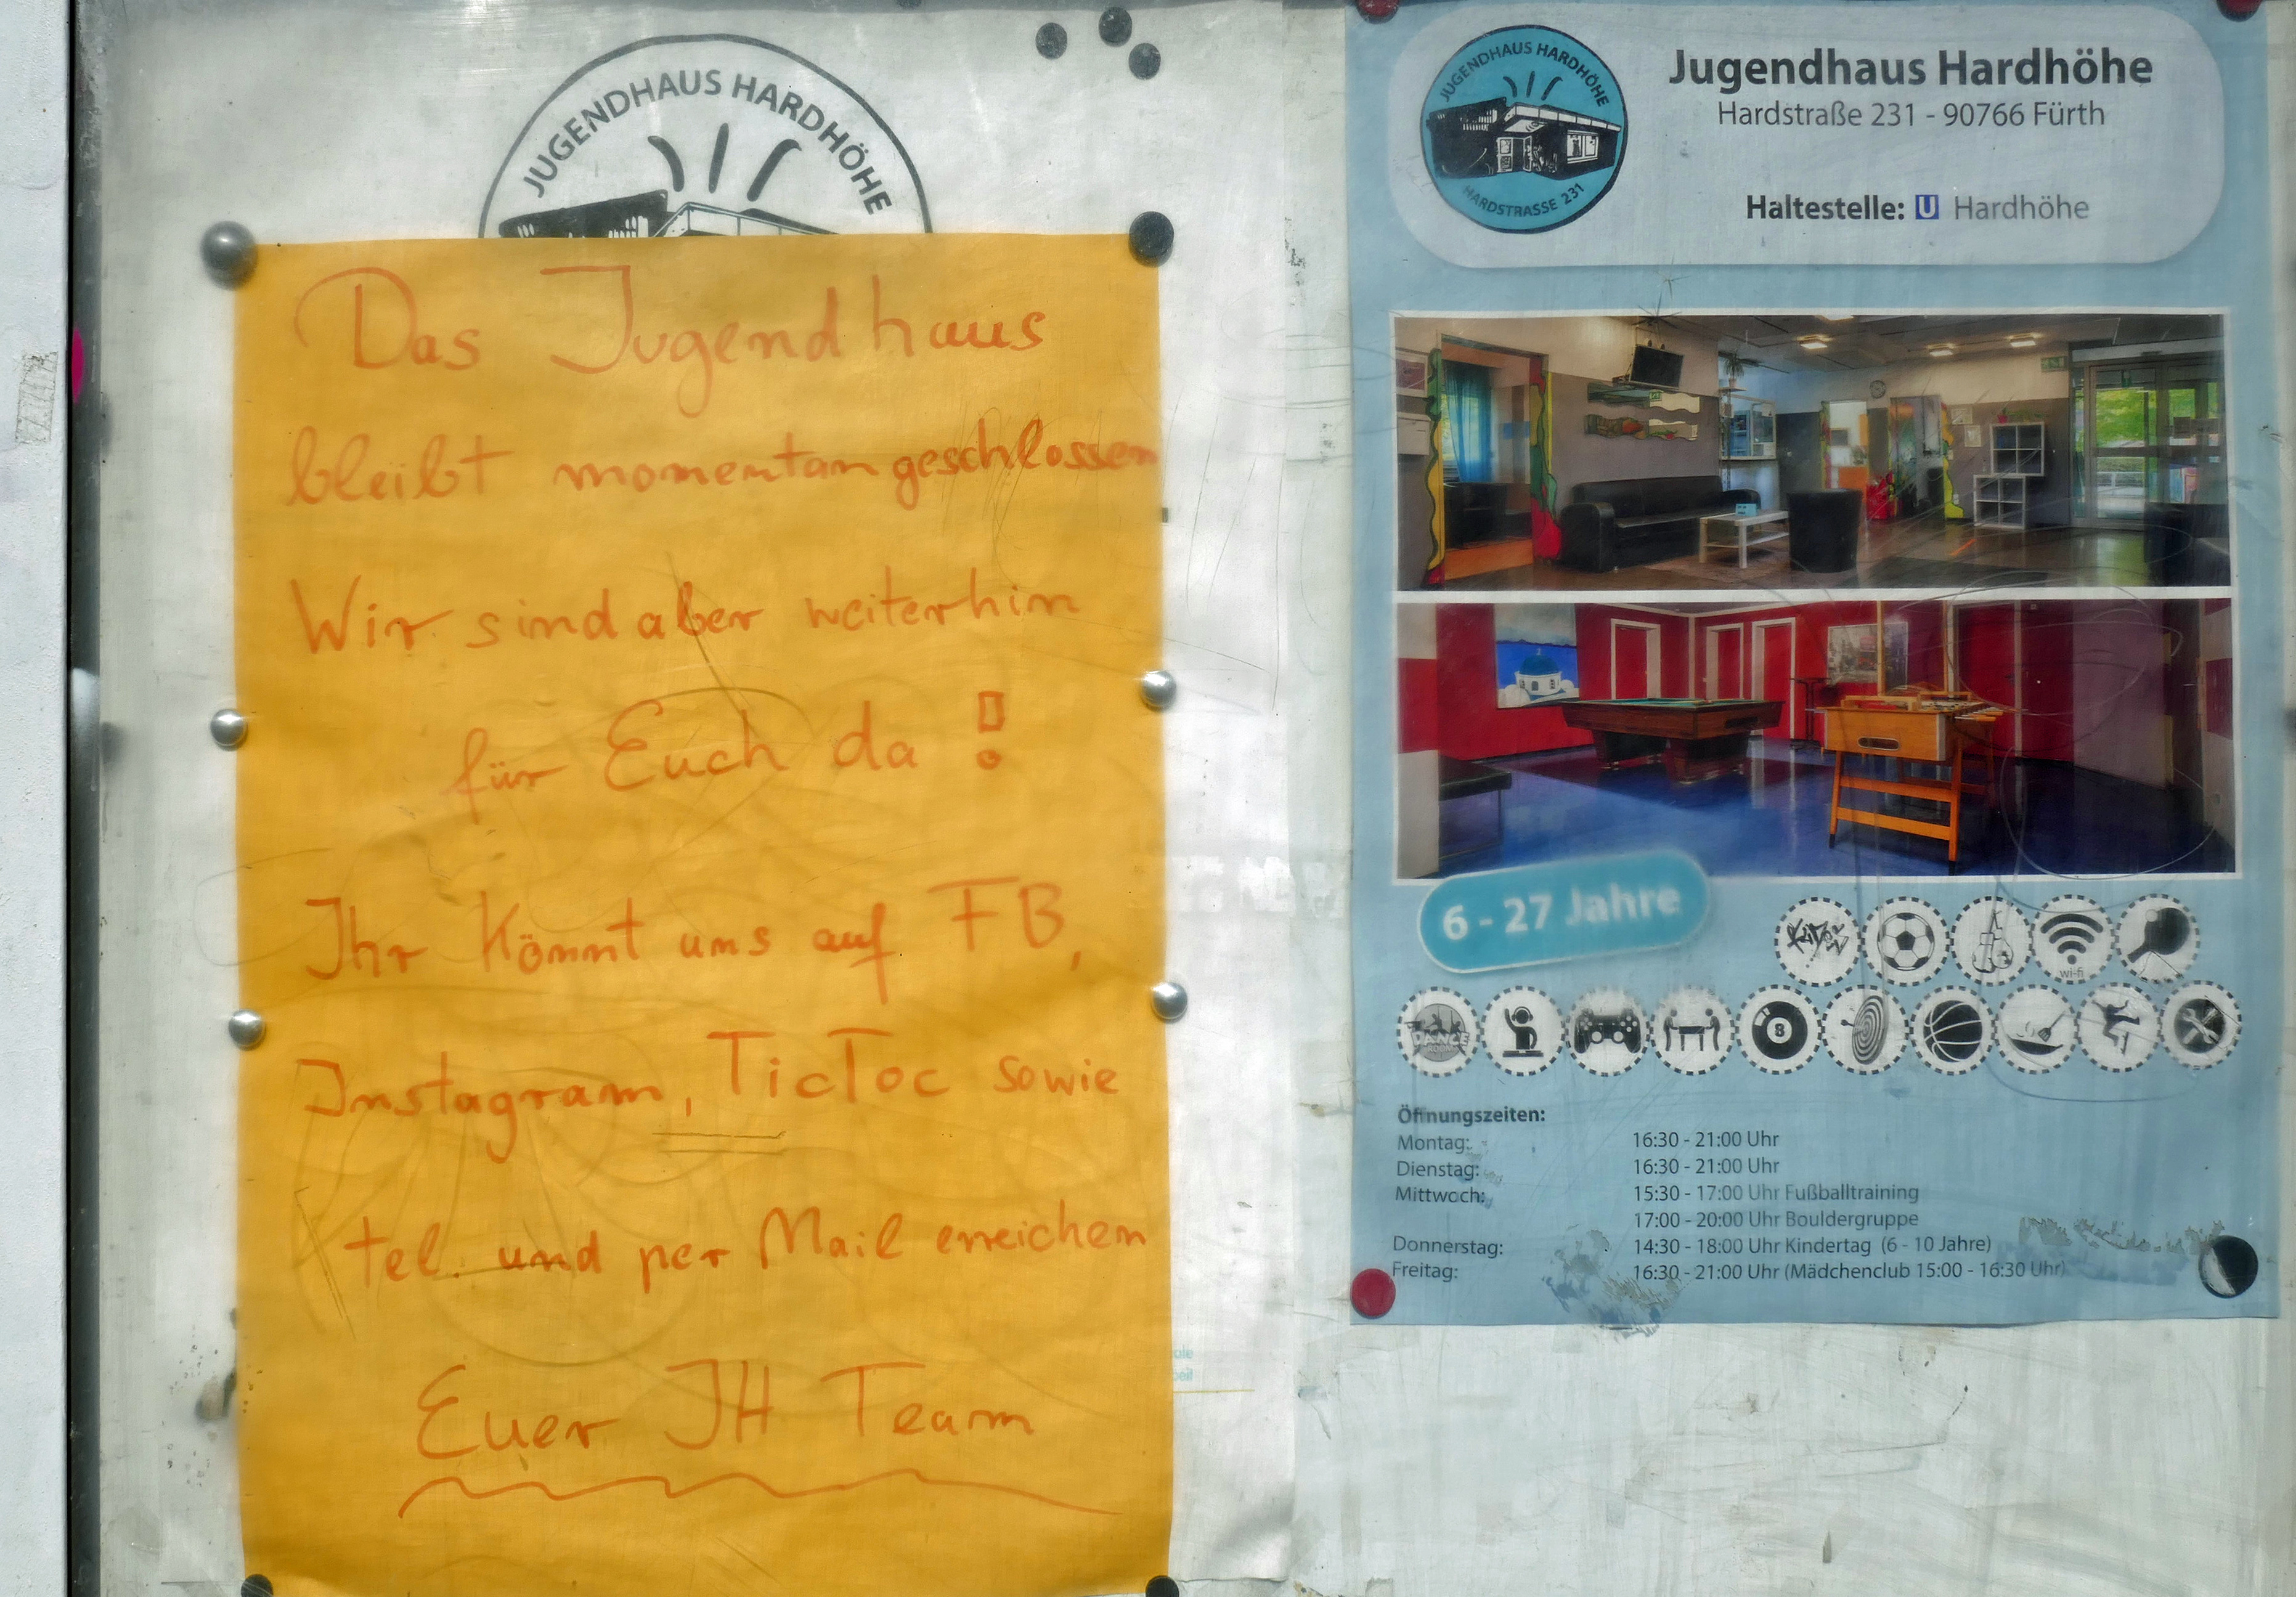 JUGENDHAUS HARDHÖHE
Das Jugendhaus
bleibt momentan geschlossen
Wir sind aber weiterhin
für Euch da !
Ihr könnt uns auf FB,
Instagram, TicToc sowie
tel. und per Mail erreichen
Euer JH Team
JUGENDHAUS HARDHÖHE
HARDSTRASSE 231
Jugendhaus Hardhöhe
Hardstraße 231 - 90766 Fürth
Haltestelle: U Hardhöhe
6 - 27 Jahre
wi-fi
DANCE
8
Öffnungszeiten:
Montag: 16:30 - 21:00 Uhr
Dienstag: 16:30 - 21:00 Uhr
Mittwoch: 15:30 - 17:00 Uhr Fußballtraining
17:00 - 20:00 Uhr Bouldergruppe
Donnerstag: 14:30 - 18:00 Uhr Kindertag (6 - 10 Jahre)
Freitag: 16:30 - 21:00 Uhr (Mädchenclub 15:00 - 16:30 Uhr)